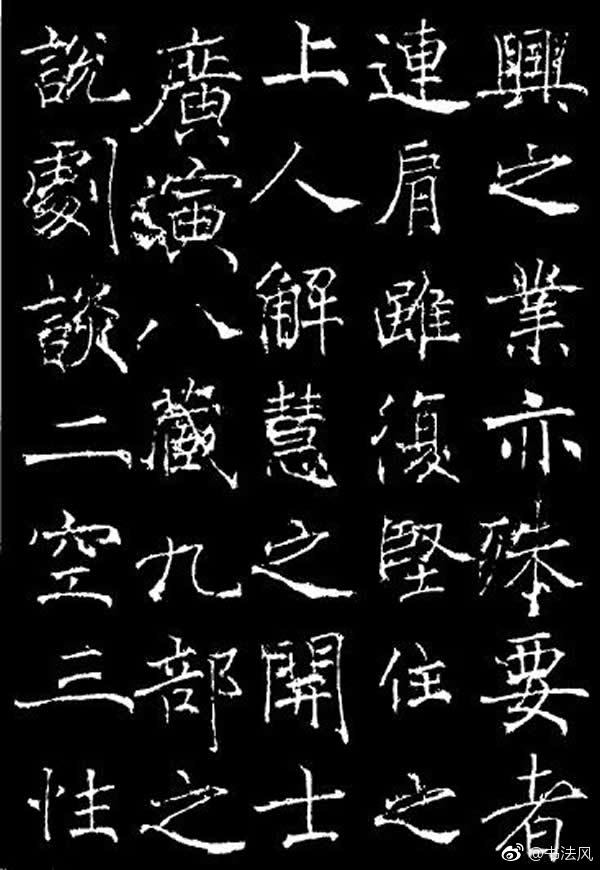 興之業亦殊要者
連肩雖復堅住之
上人解慧之開士
廣演八藏九部之
說劇談二空三性
@书法风